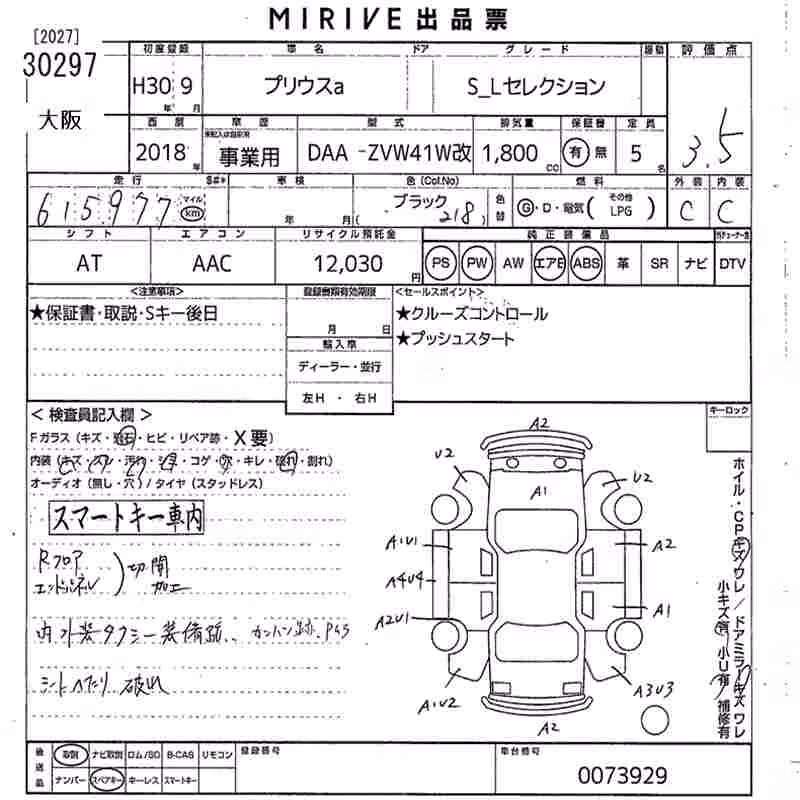 MIRIVE 出品票
[2027]
30297
大阪
初度登録 車名 ドア グレード 評価点
H30 9 プリウスa S_Lセレクション 3.5
年 月
西暦 車歴 型式 排気量 保証書 定員
2018年 事業用 DAA -ZVW41W改 1,800cc 有 無 5名
走行 車検 色(Col.No) 色替 燃料 外装 内装
615977 マイル km 年 月 ブラック (218) G・D・電気( その他 LPG ) C C
シフト エアコン リサイクル預託金 純正装備品
AT AAC 12,030円 PS PW AW エアB ABS 革 SR ナビ DTV
<注意事項> 登録書類有効期限 <セールスポイント>
★保証書・取説・Sキー後日
月 日
★クルーズコントロール
★プッシュスタート
輸入車
ディーラー・並行
左H ・ 右H
キーロック
< 検査員記入欄 >
Fガラス (キズ・飛石・ヒビ・リペア跡・X要)
内装 (キズ・スレ・汚れ・シミ・コゲ・穴・キレ・破れ・割れ)
オーディオ (無し・穴) / タイヤ (スタッドレス)
スマートキー車内
Rフロア
エンドパネル
切開
加工
内外装タクシー装備跡、カンバン跡、P45
シートヘタリ 破れ
A2
U2
U2
A1
A1U1
A2
A4U4
A2U1
A1
A1U2
A3U3
A2
ホイル・CPキズワレ/ドアミラーキズワレ
小キズ有 小U有 補修有
後送品 取説 ナビ取説 ロム/SD B-CAS リモコン 登録番号 車台番号
ナンバー スペアキー キーレス スマートキー 0073929